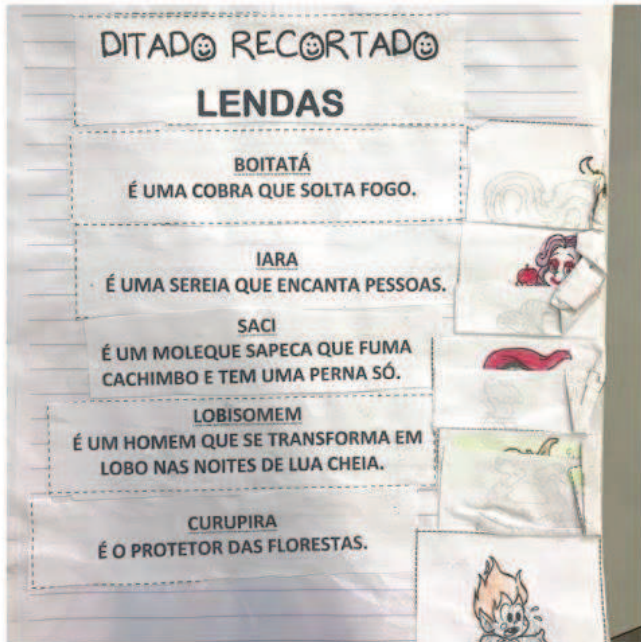 DITADO RECORTADO
LENDAS
BOITATÁ
É UMA COBRA QUE SOLTA FOGO.
IARA
É UMA SEREIA QUE ENCANTA PESSOAS.
SACI
É UM MOLEQUE SAPECA QUE FUMA
CACHIMBO E TEM UMA PERNA SÓ.
LOBISOMEM
É UM HOMEM QUE SE TRANSFORMA EM
LOBO NAS NOITES DE LUA CHEIA.
CURUPIRA
É O PROTETOR DAS FLORESTAS.